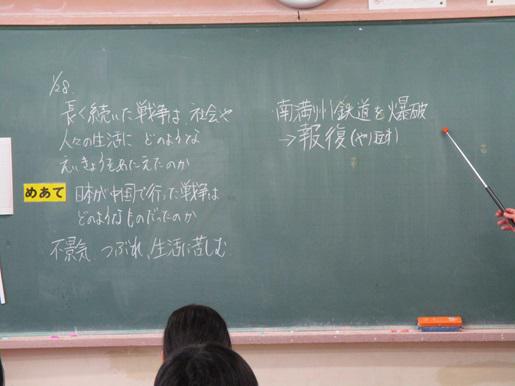 1/28.
長く続いた戦争は、社会や
人々の生活に どのような
えいきょうをあたえたのか
めあて 日本が中国で行った戦争は
どのようなものだったのか
不景気 つぶれ、生活に苦しむ
南満州鉄道を爆破
→報復(やり返す)